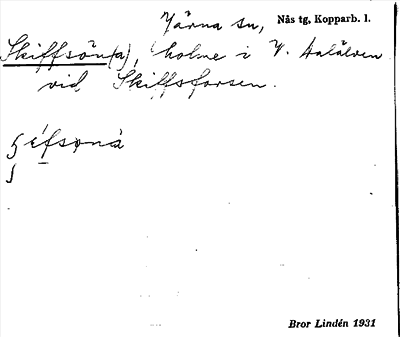 Järna sn, Nås tg, Kopparb. l.
Skiffsön(a), holme i V. Dalälven
vid Skiffsforsen.
Bror Lindén 1931